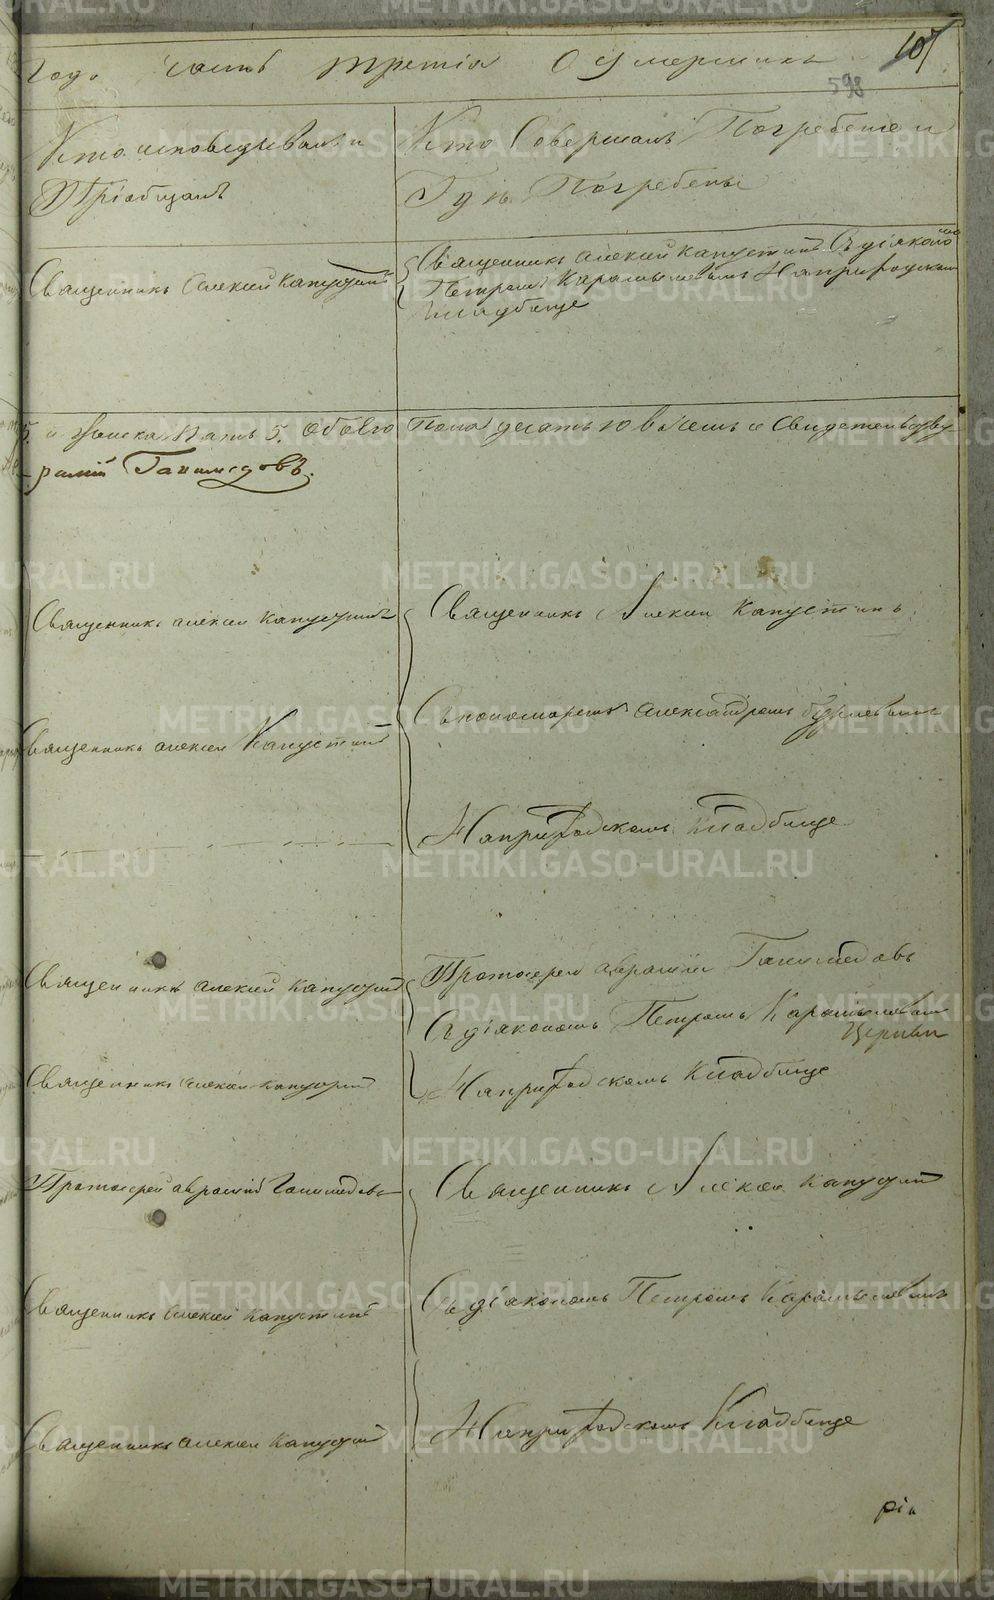 Года часть третія О умершихъ
107
598
Кто исповедывалъ и
Пріобщалъ
Кто Совершалъ Погребение и
Где Погребены
Священникъ Алексий Капустинъ
Священникъ Алексий Капустинъ Съ діякономъ
Петромъ Карамышевымъ На приходскомъ
Кладбище
5. и женска пять 5. Обоего пола десять 10 в чемъ и Свидетельству
Ганимедовъ.
Священникъ Алексий Капустинъ
Священникъ Алексий Капустинъ
Священникъ Алексий Капустинъ
Спономаремъ Александромъ
На приходскомъ Кладбище
Священникъ Алексий Капустинъ
Протоиерей Аврамий Ганимедовъ
Съ діякономъ Петромъ Карамышевымъ
Священникъ Алексий Капустинъ
На приходскомъ Кладбище
Протоиерей Аврамий Ганимедовъ
Священникъ Алексий Капустинъ
Священникъ Алексий Капустинъ
Съ діякономъ Петромъ Карамышевымъ
Священникъ Алексий Капустинъ
На приходскомъ Кладбище
METRIKI.GASO-URAL.RU